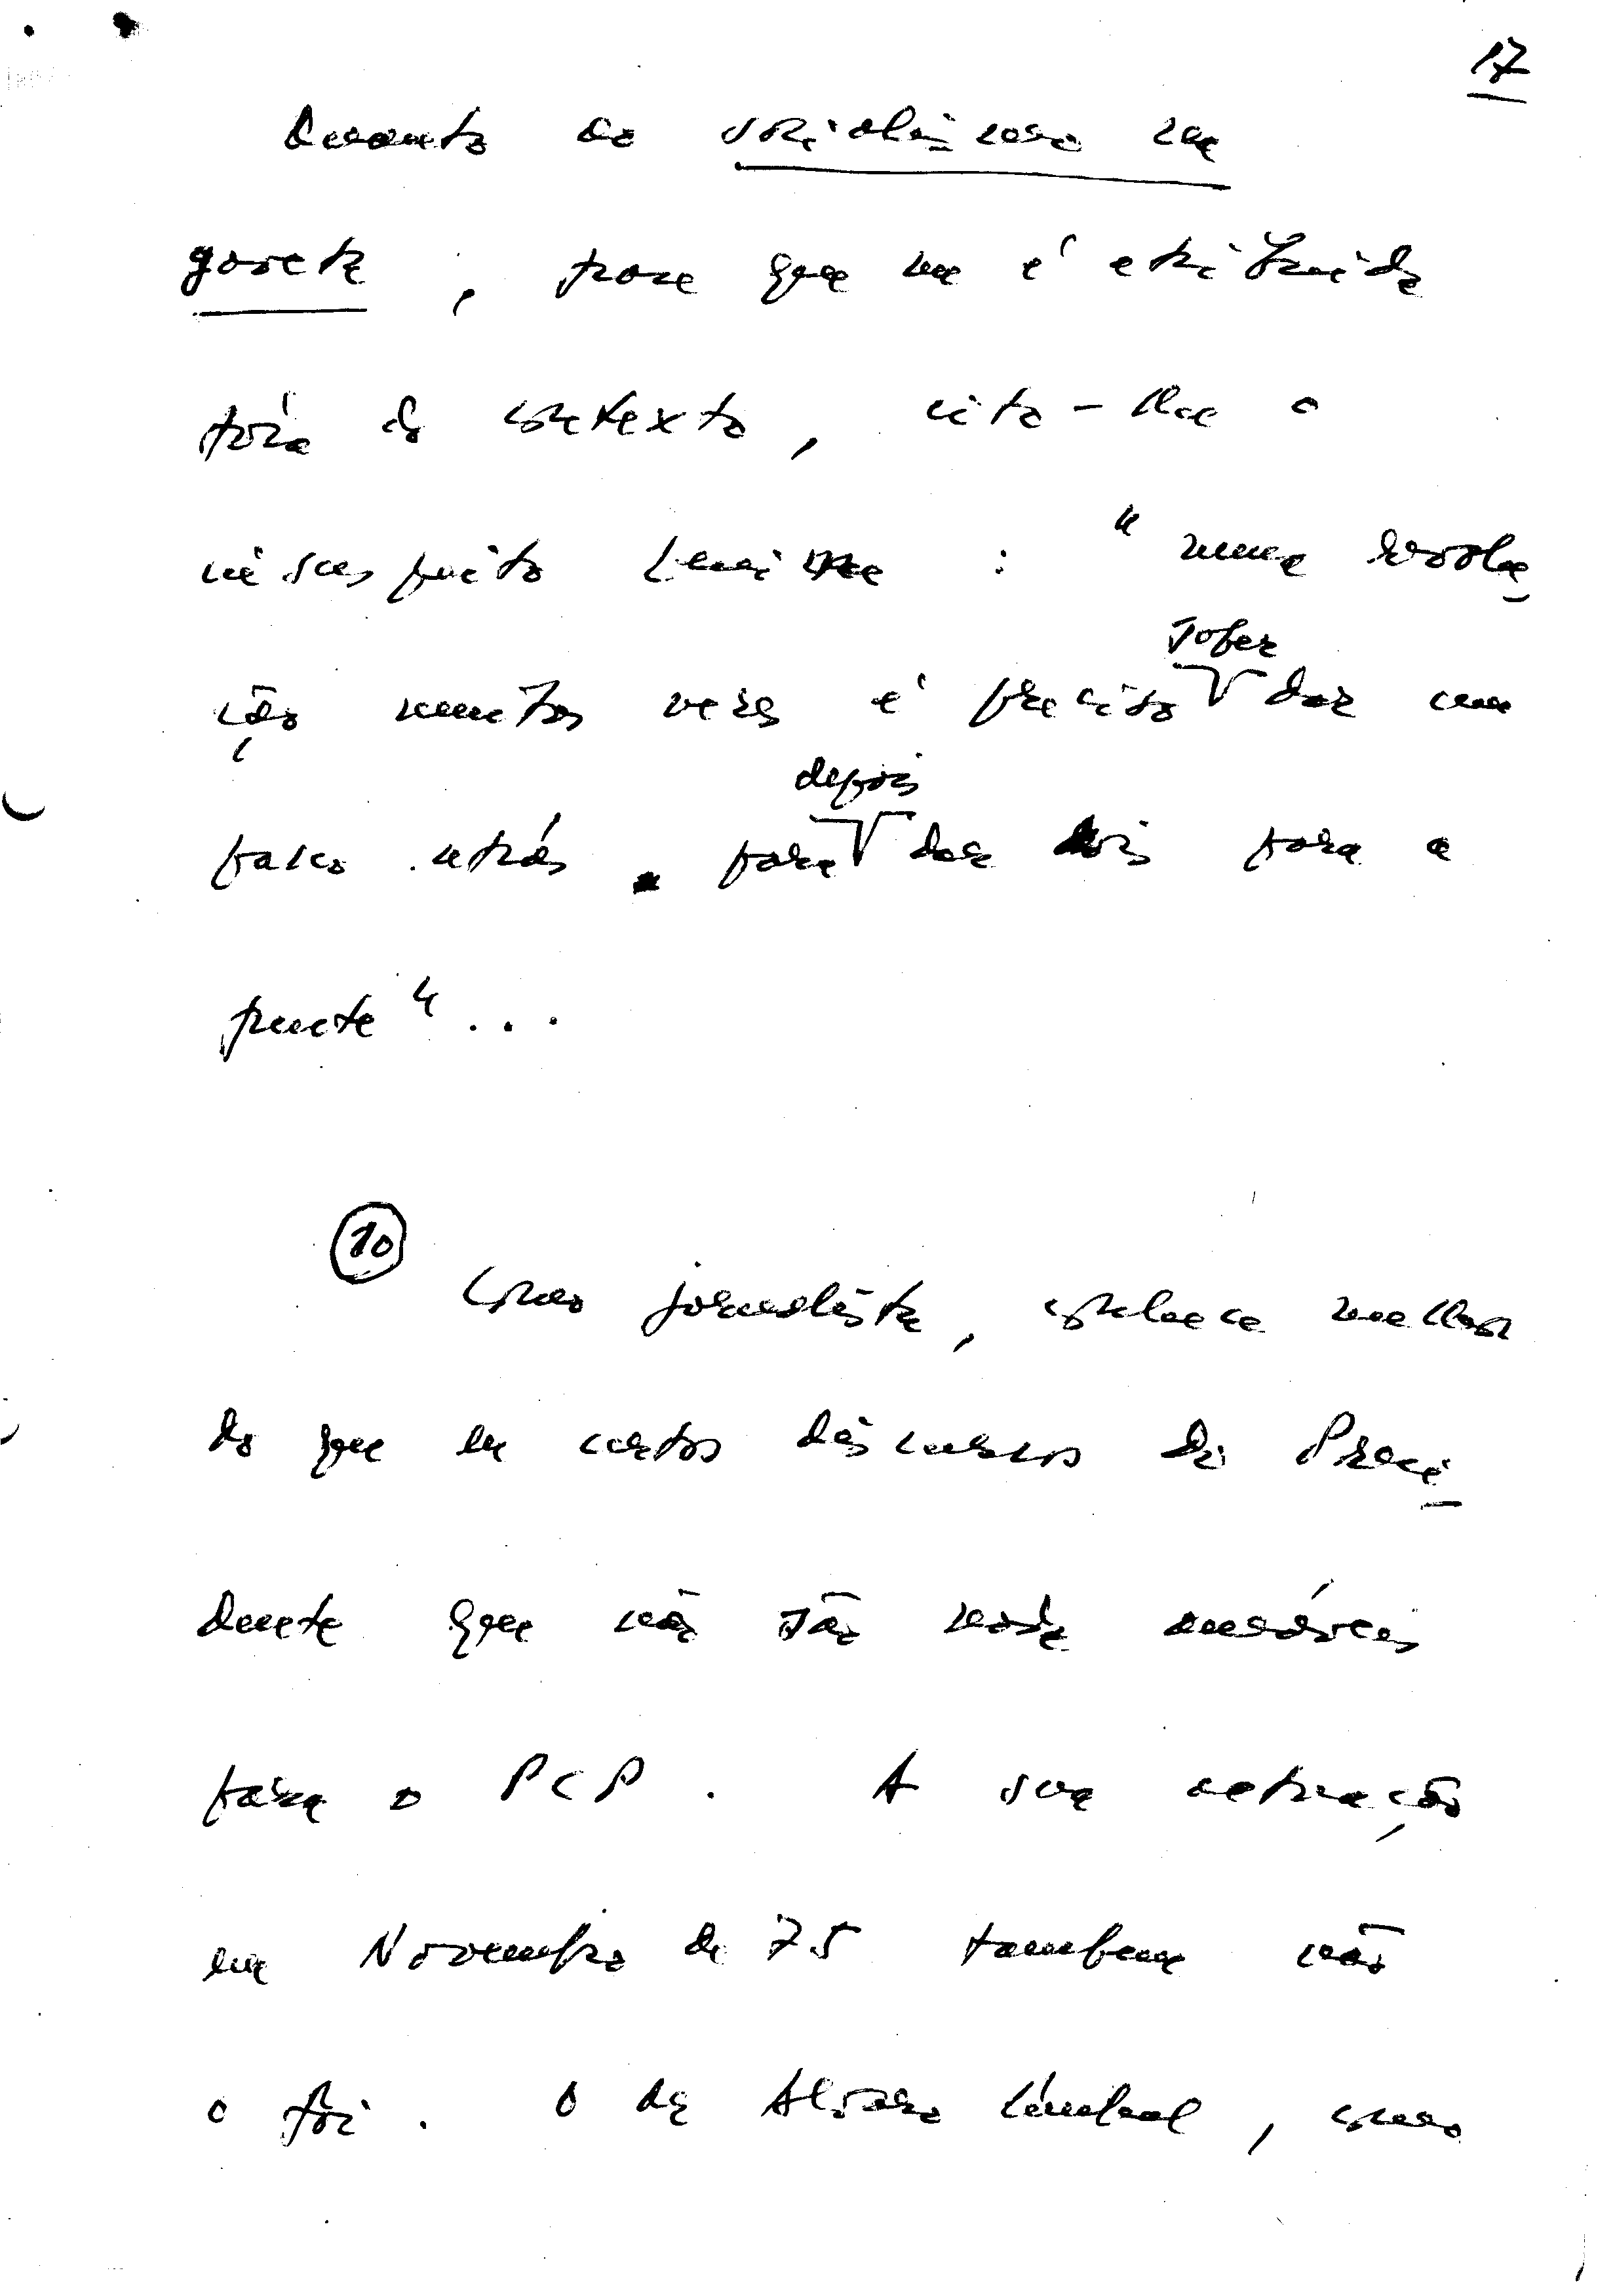 17
Quanto ao socialismo na
gaveta, frase que me é atribuída
fóra do contexto, cito-lhe o
insuspeito Lenine : "numa revolu
ção muitas vezes é preciso saber dar um
passo atrás para depois dar dois para a
frente"...
10 Como jornalista, conhece melhor
do que eu certos discursos do Presi
dente que não são nada amáveis
para o PCP. A sua actuação
em Novembro de 75 tambem não
o foi. O Dr Alvaro Cunhal, como